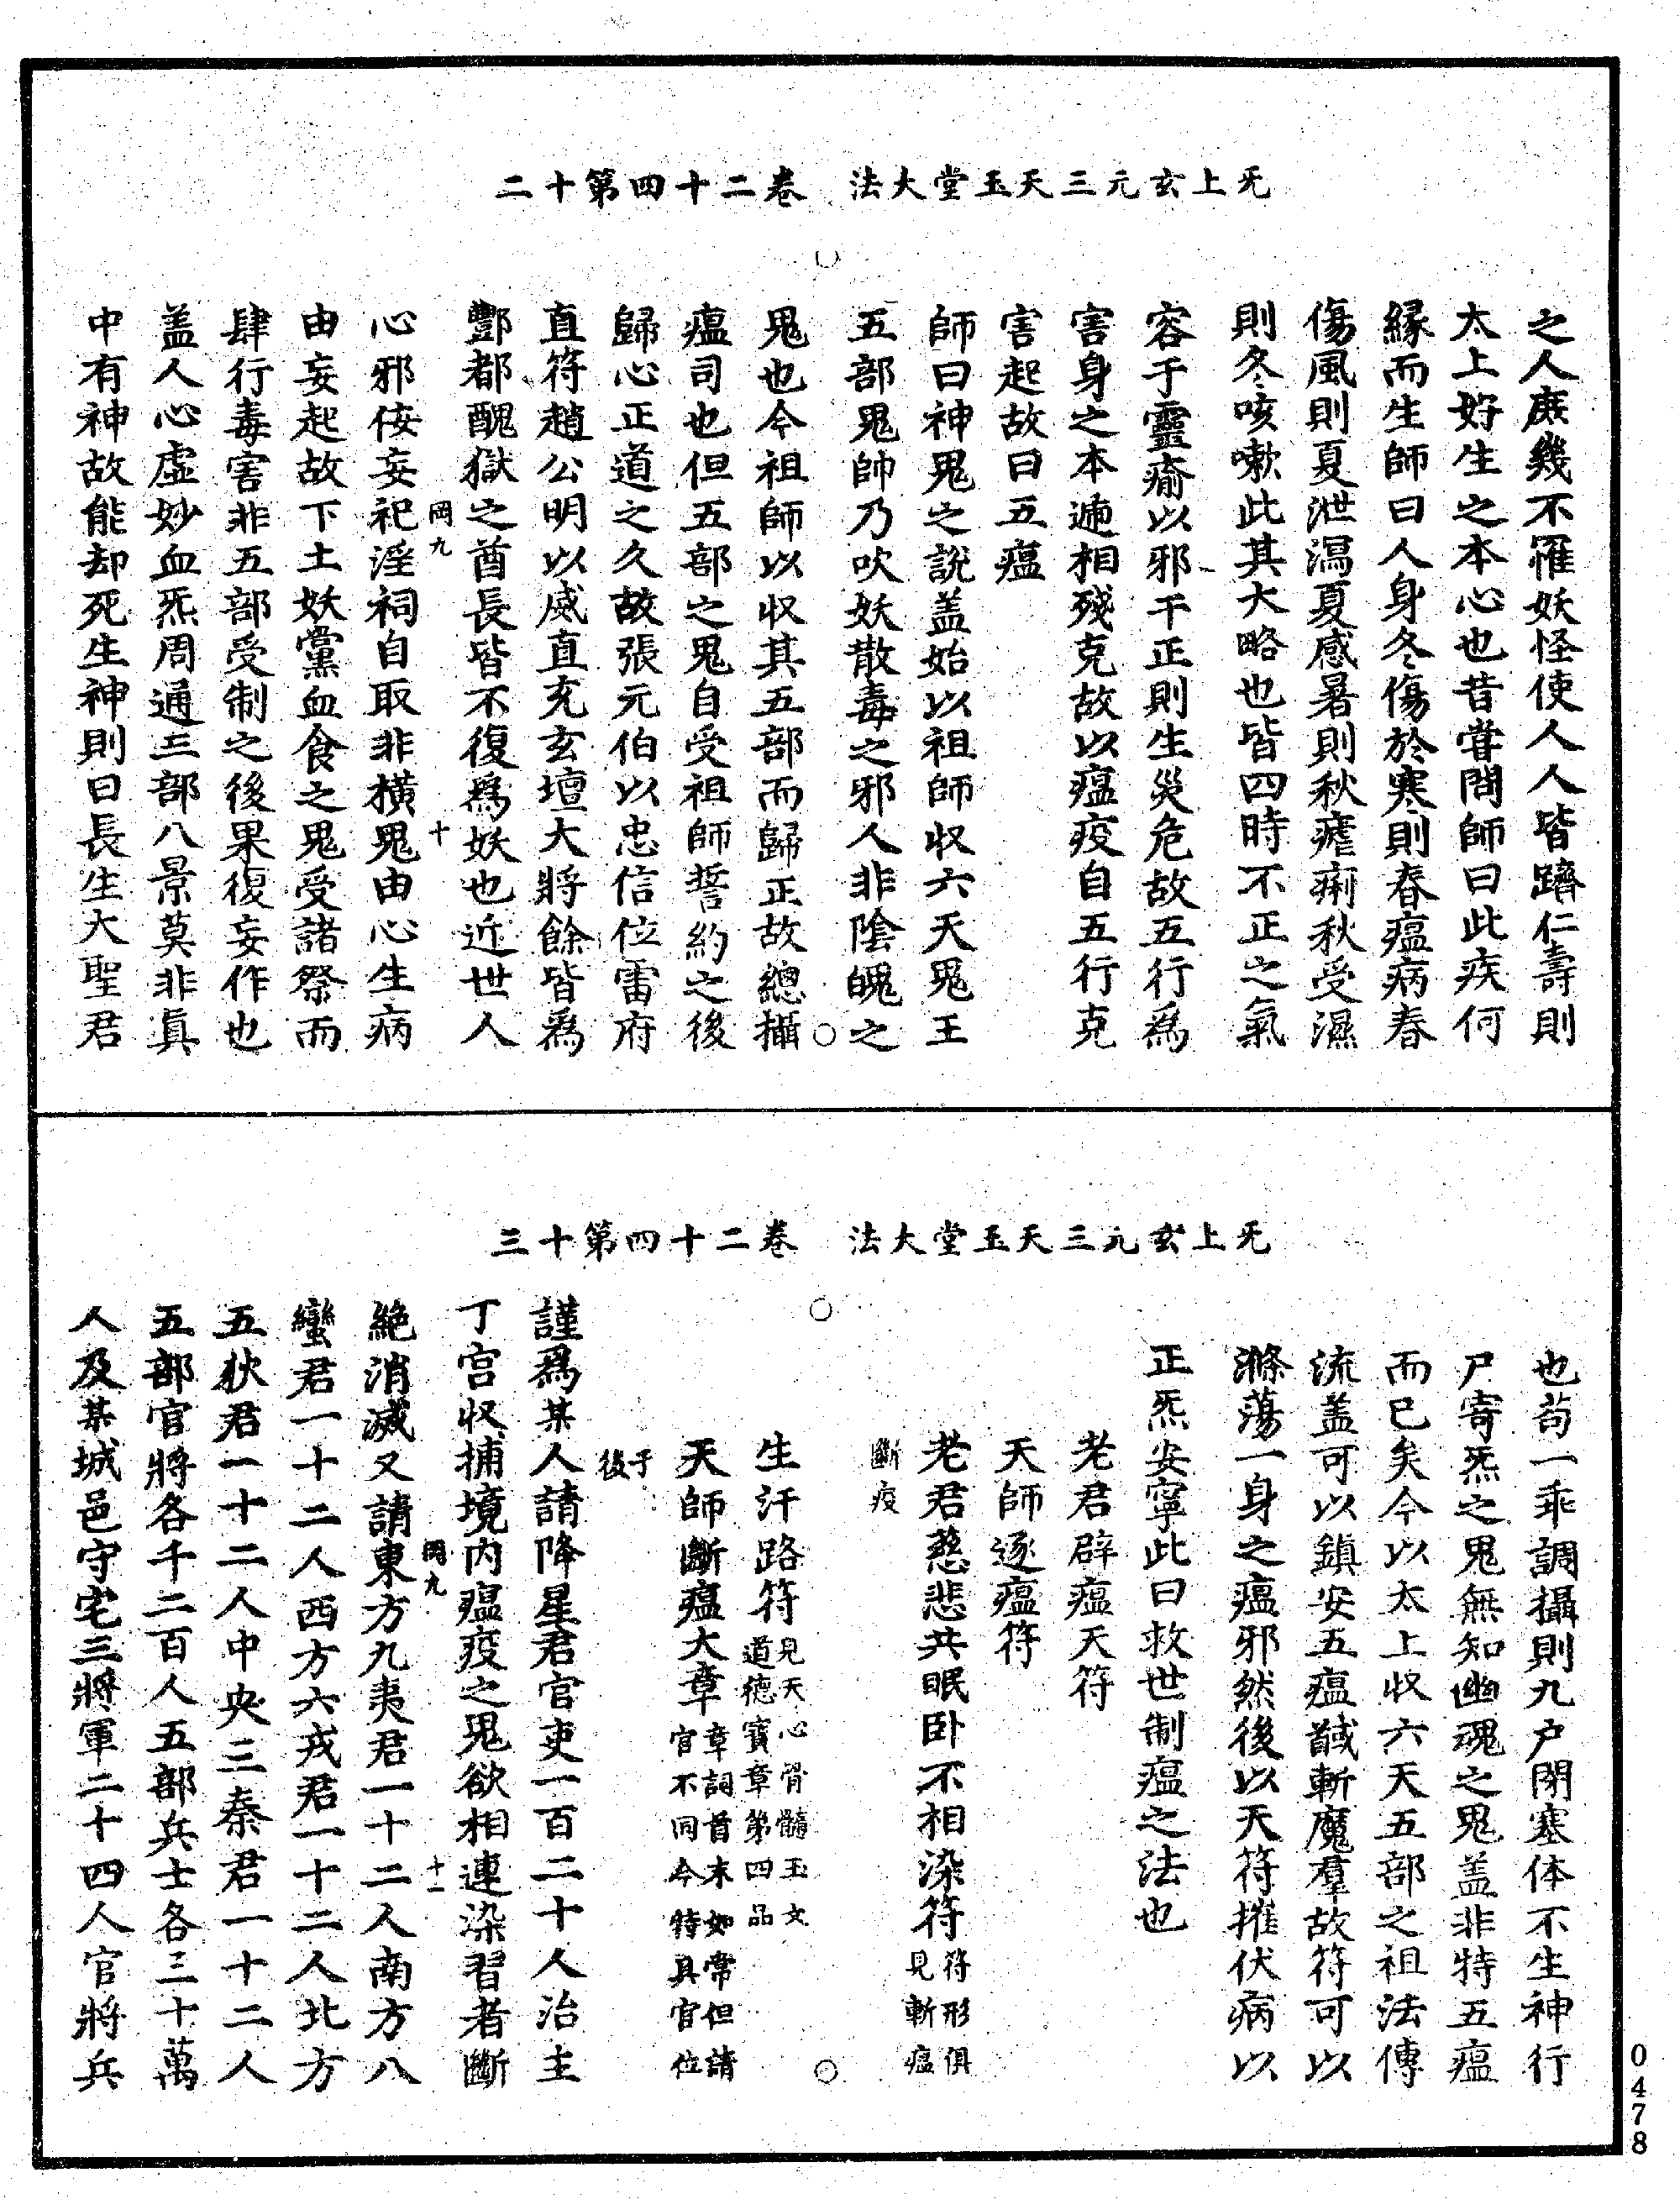 无上玄元三天玉堂大法　卷二十四第十二
之人庶幾不罹妖怪使人人皆躋仁壽則
太上好生之本心也昔嘗問師曰此疾何
緣而生師曰人身冬傷於寒則春瘟病春
傷風則夏泄瀉夏感暑則秋瘧痢秋受濕
則冬咳嗽此其大略也皆四時不正之氣
容于靈瘉以邪干正則生災危故五行爲
害身之本遞相殘克故以瘟疫自五行克
害起故曰五瘟
師曰神鬼之說盖始以祖師收六天鬼王
五部鬼帥乃吹妖散毒之邪人非陰醜之
鬼也今祖師以收其五部而歸正故總攝
瘟司也但五部之鬼自受祖師誓約之後
歸心正道之久故張元伯以忠信位雷府
直符趙公明以威直充玄壇大將餘皆爲
酆都醜獄之酋長皆不復爲妖也近世人
岡九　十
心邪侫妄祀淫祠自取非橫鬼由心生病
由妄起故下土妖黨血食之鬼受諸祭而
肆行毒害非五部受制之後果復妄作也
盖人心虛妙血炁周通三部八景莫非眞
中有神故能却死生神則曰長生大聖君
无上玄元三天玉堂大法　卷二十四第十三
也苟一乖調攝則九户閉塞体不生神行
尸寄炁之鬼無知幽魂之鬼盖非特五瘟
而已矣今以太上收六天五部之祖法傳
流盖可以鎮安五瘟馘斬魔羣故符可以
滌蕩一身之瘟邪然後以天符摧伏病以
正炁安寧此曰救世制瘟之法也
老君辟瘟天符
天師逐瘟符
老君慈悲共眠卧不相染符符形俱見斬瘟
斷疫
生汗路符見天心骨髓玉文道德寳章第四品
天師斷瘟大章章詞首末如常但請官不同今特具官位
于後
謹爲某人請降星君官吏一百二十人治主
丁宫收捕境内瘟疫之鬼欲相連染習者斷
岡九　十一
絶消滅又請東方九夷君一十二人南方八
蠻君一十二人西方六戎君一十二人北方
五狄君一十二人中央三秦君一十二人
五部官將各千二百人五部兵士各三十萬
人及某城邑守宅三將軍二十四人官將兵
0478